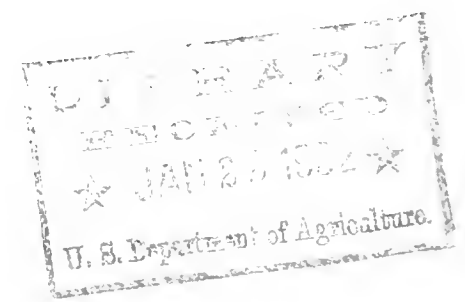 LIBRARY
RECEIVED
★ JAN ★
U. S. Department of Agriculture.